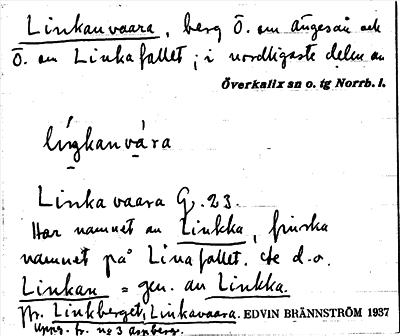 Linkanvaara, berg Ö. om Ängesån och
Ö. om Linkafallet; i nordligaste delen av
Överkalix sn o. tg Norrb. l.
lı́ŋkanvára
Linkavaara G. 23.
Har namnet av Linkka, finska
namnet på Linafallet. Se d.o.
Linkan = gen. av Linkka.
Jfr. Linkberget, Linkavaara. EDVIN BRÄNNSTRÖM 1937
Uppg. fr. no 3